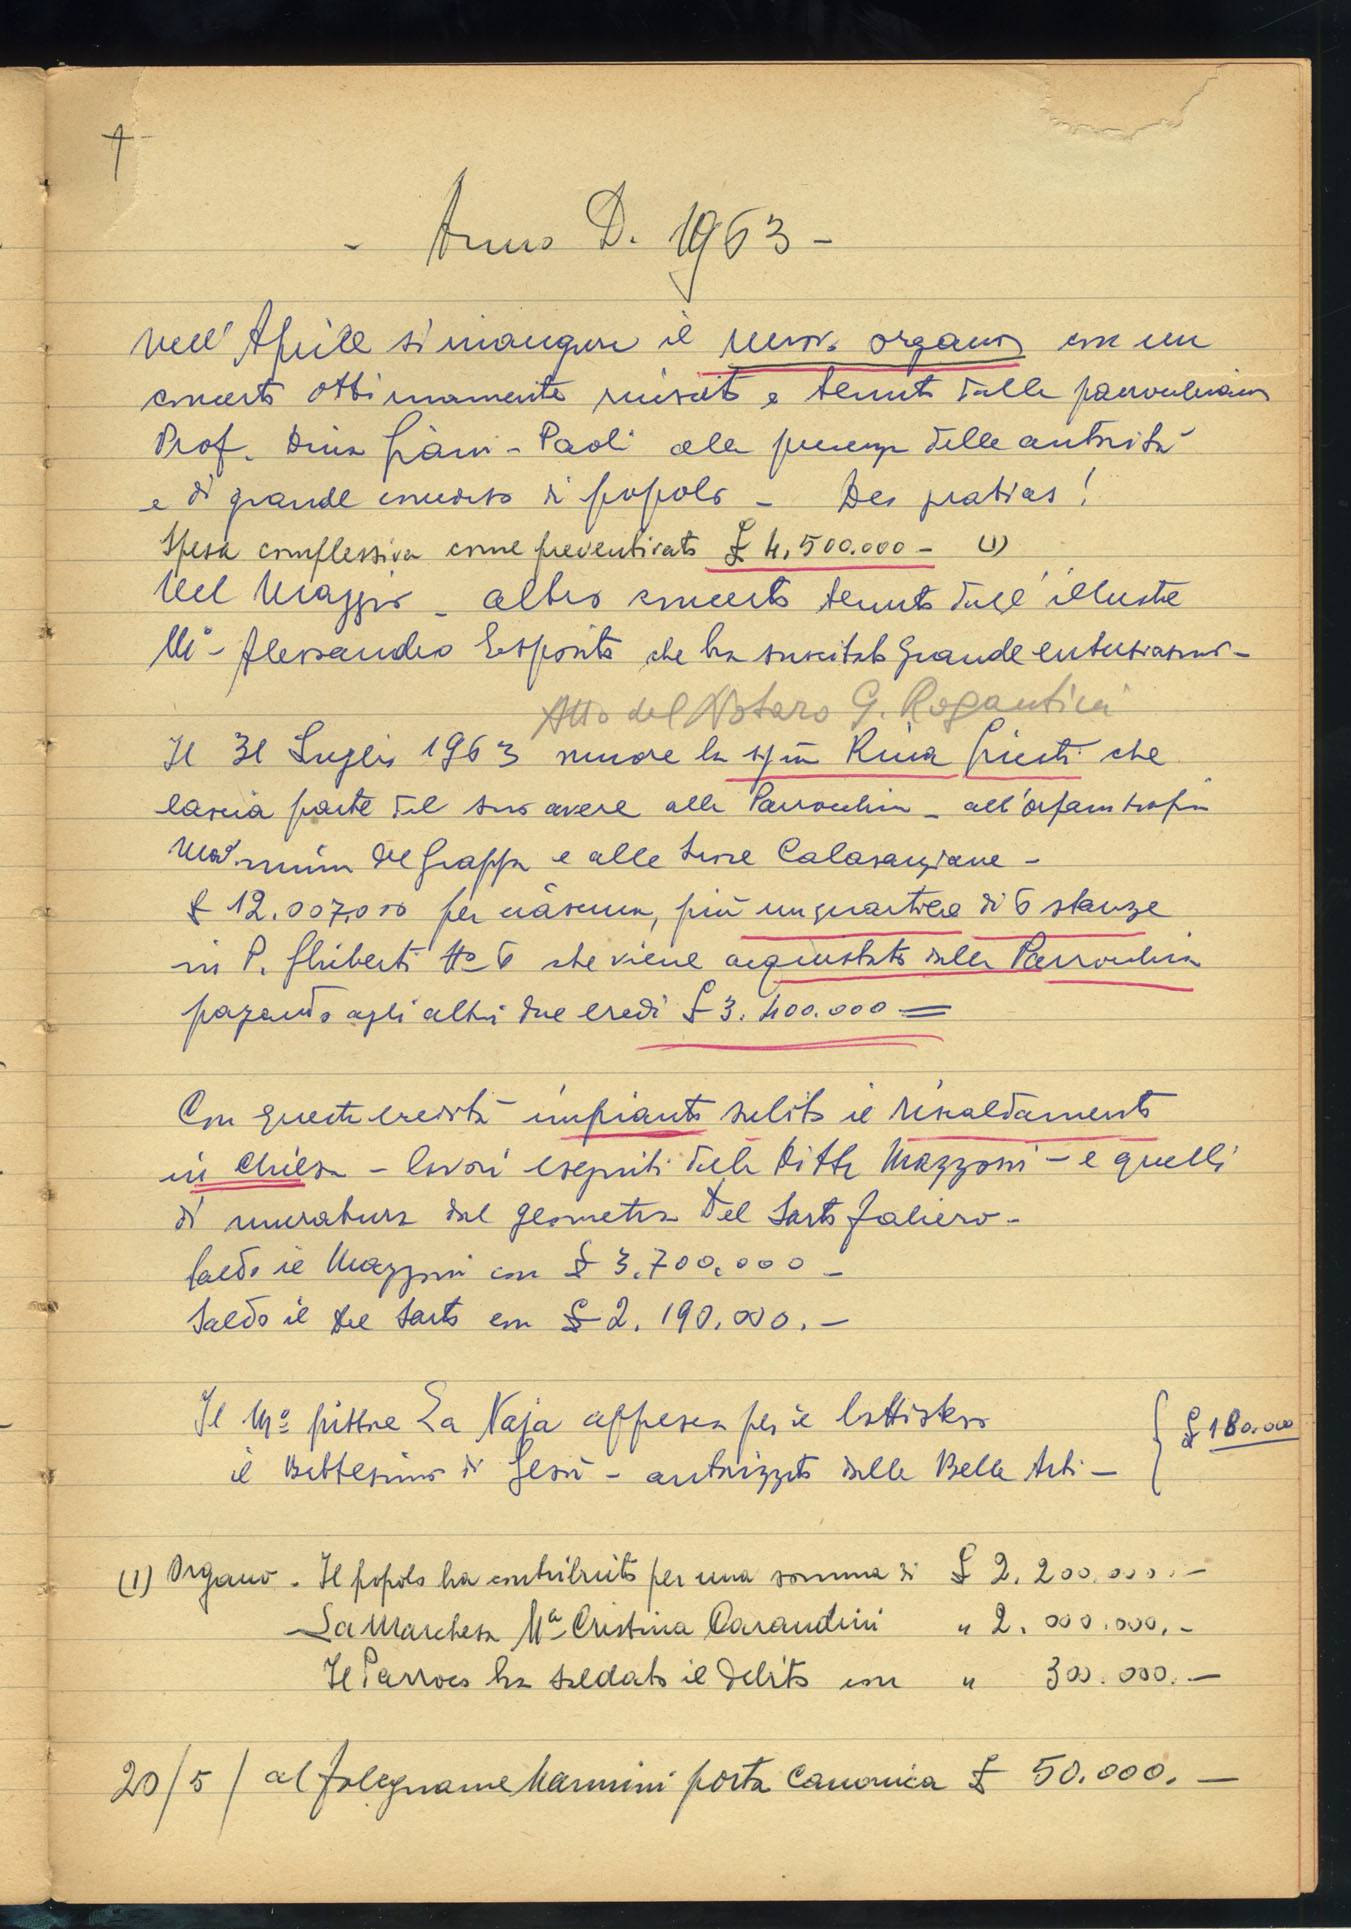 - Anno D. 1963 -
Nell' Aprile si inaugura il nuovo organo con un
concerto ottimamente riuscito e tenuto dalla parrocchiana
Prof. Dina Giani-Paoli alla presenza delle autorità
e di grande concorso di popolo - Deo gratias!
Spesa complessiva come preventivato £ 4.500.000 - (1)
Nel Maggio - altro concerto tenuto dall'illustre
M° - Alessandro Esposito che ha suscitato grande entusiasmo -
Atto del Notaro G. Rogantini
Il 31 Luglio 1963 muore la sig.na Rina Giusti che
lascia parte del suo avere alla Parrocchia - all'orfanotrofio
del Grappa e alle Suore Calasanziane -
£ 12.007.000 per ciascuna, più un quartiere di 6 stanze
in P. Ghiberti No 6 che viene acquistato dalla Parrocchia
pagando agli altri due eredi £ 3.400.000 =
Con questa eredità impianto subito il riscaldamento
in chiesa - lavori eseguiti dalla Ditta Mazzoni - e quelli
di muratura dal geometra Del Sarto Faliero -
Saldo il Mazzoni con £ 3.700.000 -
Saldo il Del Sarto con £ 2.190.000. -
Il M° pittore La Naja affresca per il battistero
il Battesimo di Gesù - autorizzato dalle Belle Arti -
£ 180.000
(1) Organo - Il popolo ha contribuito per una somma di £ 2.200.000. -
La Marchesa Mª Cristina Carandini " 2.000.000. -
Il Parroco ha saldato il debito con " 300.000. -
20/5/ al falegname Mannini porta canonica £ 50.000. -